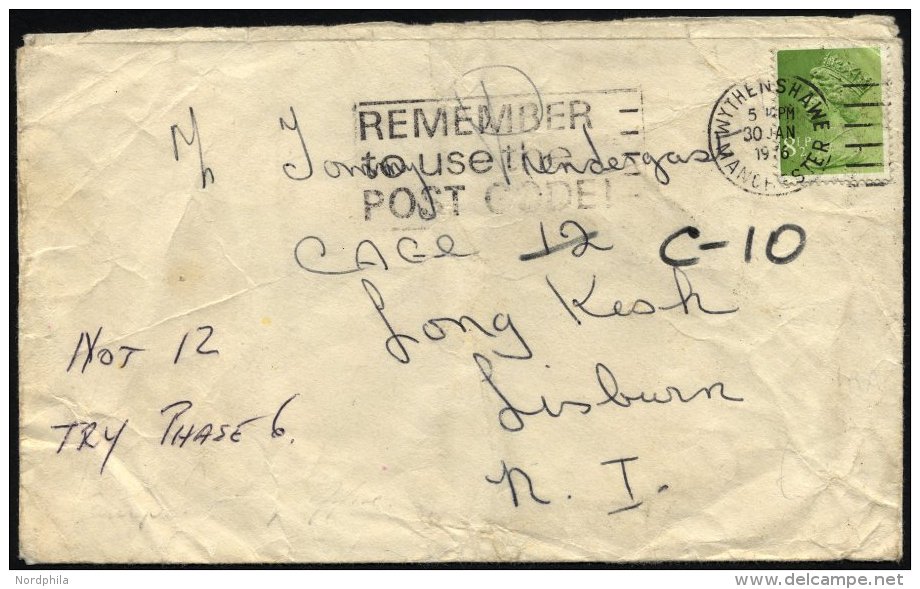 WYTHENSHAWE
MANCHESTER
5 PM
30 JAN
1976
REMEMBER
to use the
POST CODE!
Mr Tommy Prendergast
CAGE 12 C-10
Long Kesh
Lisburn
N. I.
NOT 12
TRY PHASE 6.
Nordphila
delcampe.net